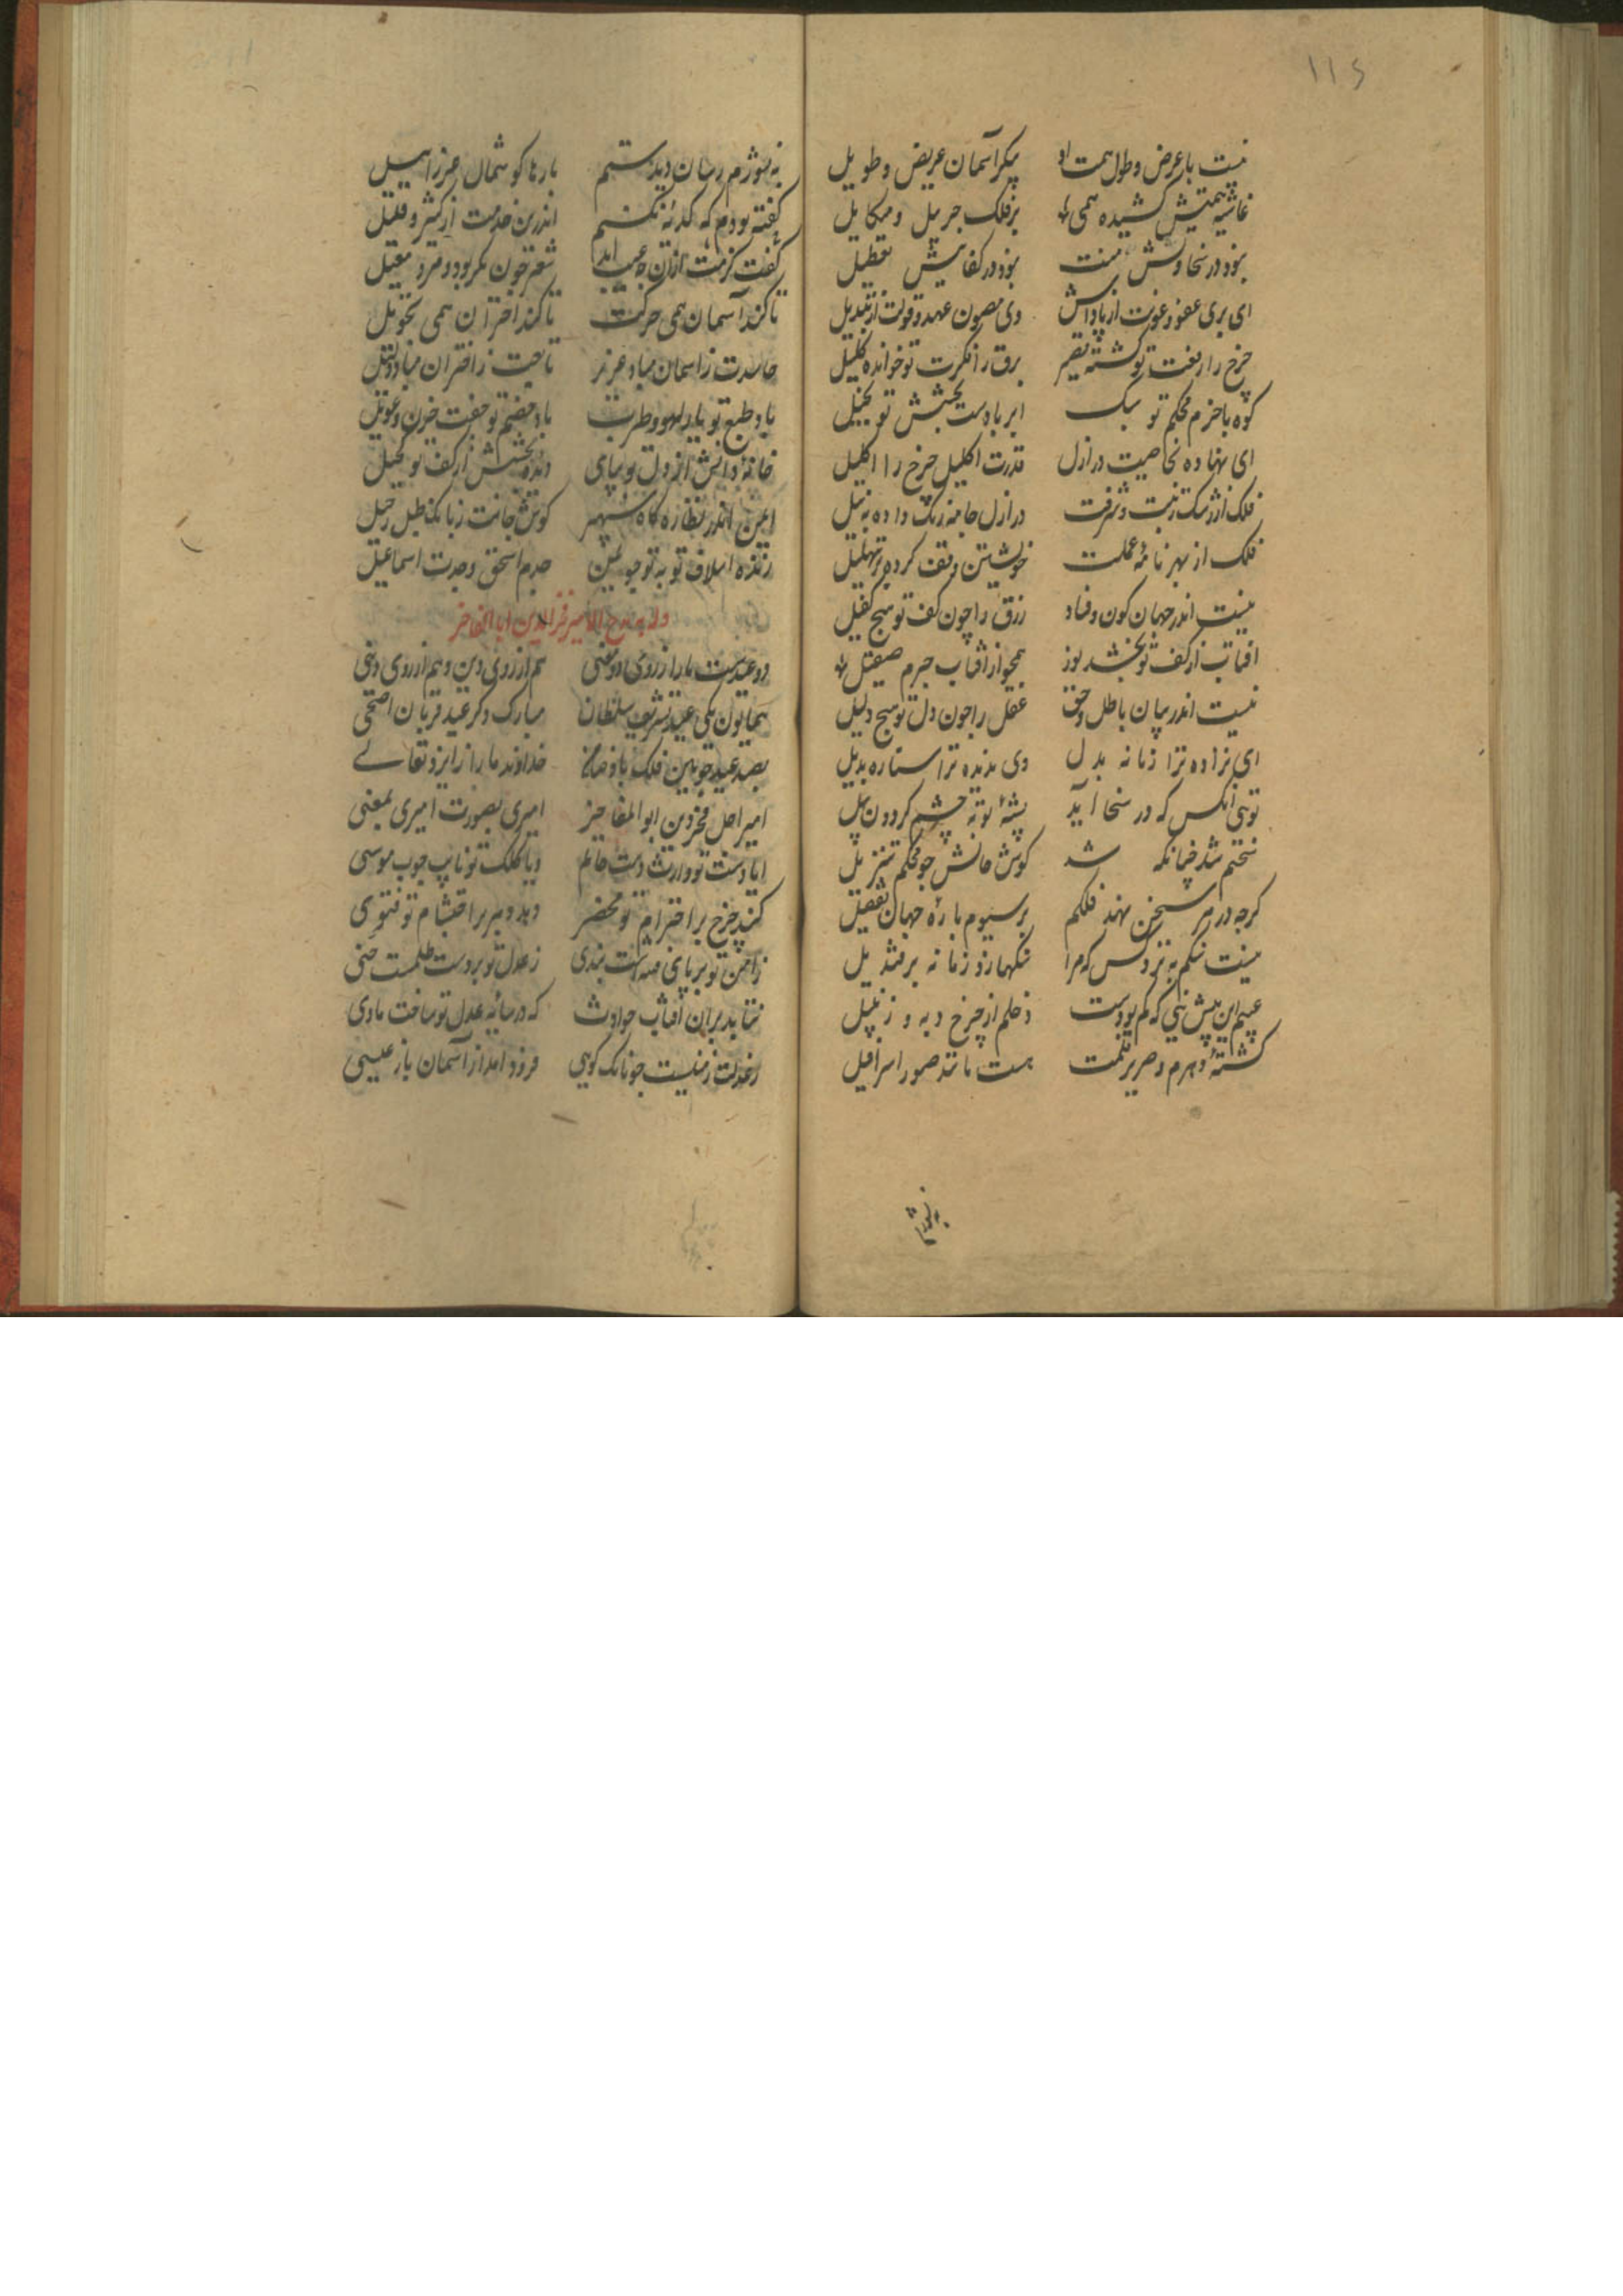 ۱۱۶
نیست با عرض و طول همت او پیکر آسمان عریض و طویل
غاشیه همتش کشیده همی بر فلک جبرئیل و میکاییل
نبود در سخاوتش منت نبود در کفایتش تعطیل
ای بری عفو و عونت از پاداش وی مصون عهد و قولت از تبدیل
چرخ را رفعت تو گفته قصیر برق را فکرت تو خوانده کلیل
کوه با حزم محکم تو سبک ابر با دست بخشش تو بخیل
ای نهاده بخاصیت در ازل قدرت اکلیل چرخ را اکلیل
فلک از رشک زینت و شرفت در ازل جامه رنگ داده به نیل
ملک از بهر نامه عملت خویشتن وقف کرده بر تهلیل
نیست اندر جهان کون و فساد رزق را چون کف تو هیچ کفیل
افتاب از کف تو بخشد نور همچو از افتاب جرم صقیل
نیست اندر میان باطل و حق عقل را چون دل تو هیچ دلیل
ای نزاده ترا زمانه بدل وی ندیده ترا ستاره بدیل
تویی انکس که در سخا آید پشه تو به چشم گردون پیل
ختم شد چنانکه شد گوش جانش چو محکم تنزیل
گرچه در هر سخن نهد فلکم بر سیوم پاره جهان تفضیل
نیست شکلم به نزد کس که مرا شکلها زد زمانه بر قندیل
غم این پیش نی که کم بودست دخلم از چرخ دبه و زنبیل
کشته دهرم و صریر قلمت هست مانند صور اسرافیل
نه بنوئی‌م
بارها گوشمال عزراییل
گفته بودم که کدیه نکنم اندرین خدمت از کثیر و قلیل
گفت کرمت ازان چه عیب اید شعر چون بکر بود و مرد معیل
تا کند آسمان همی حرکت تا کنند اختران همی تحویل
حاسدت ز اسمان مباد عزیز ناصحت ز اختران مباد ذلیل
باد طبع تو یار لهو و طرب باد خصم تو جفت خون و عویل
خانه دانش از دل تو بپای دیده بخشش از کف تو کحیل
ایمن اندر نظاره گاه سپهر گوش جانت ز بانگ طبل رحیل
زنده اسلاف تو به تو چو بمن جدم اسحق و جدت اسماعیل
وله یمدح الامیر فخرالدین ابا المفاخر
دو عیدست ما را ز روی دو معنی هم از روی دین و هم از روی دنی
همایون یکی عید تشریف سلطان مبارک دگر عید قربان اضحی
بصد عید چونین فلک باد ضامن خداوند ما را ز ایزد تعالی
امیر اجل فخر دین ابو المفاخر امیری بصورت امیری بمعنی
ایا دست تو وارث دست حاتم ویا کلک تو نایب چوب موسی
کند چرخ بر احترام تو محضر دهد دهر بر احتشام تو فتوی
ز امن تو بر پای فتنه‌ست بندی ز عدل تو بر دست ظلمست حنی
نتابد بران آفتاب حوادث که در سایه عدل تو ساخت ماوی
ز عدلت زمینست چونانک گویی فرود امد از آسمان باز عیسی